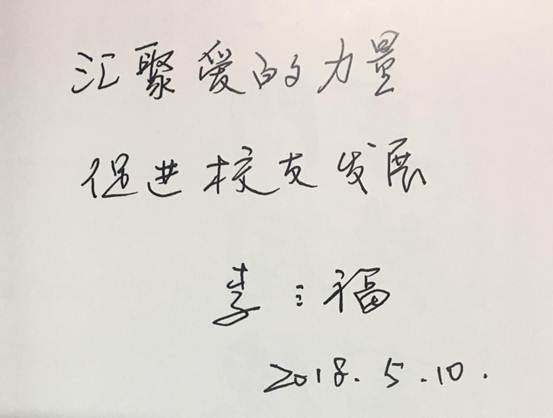 汇聚爱的力量
促进校友发展
李三福
2018.5.10.